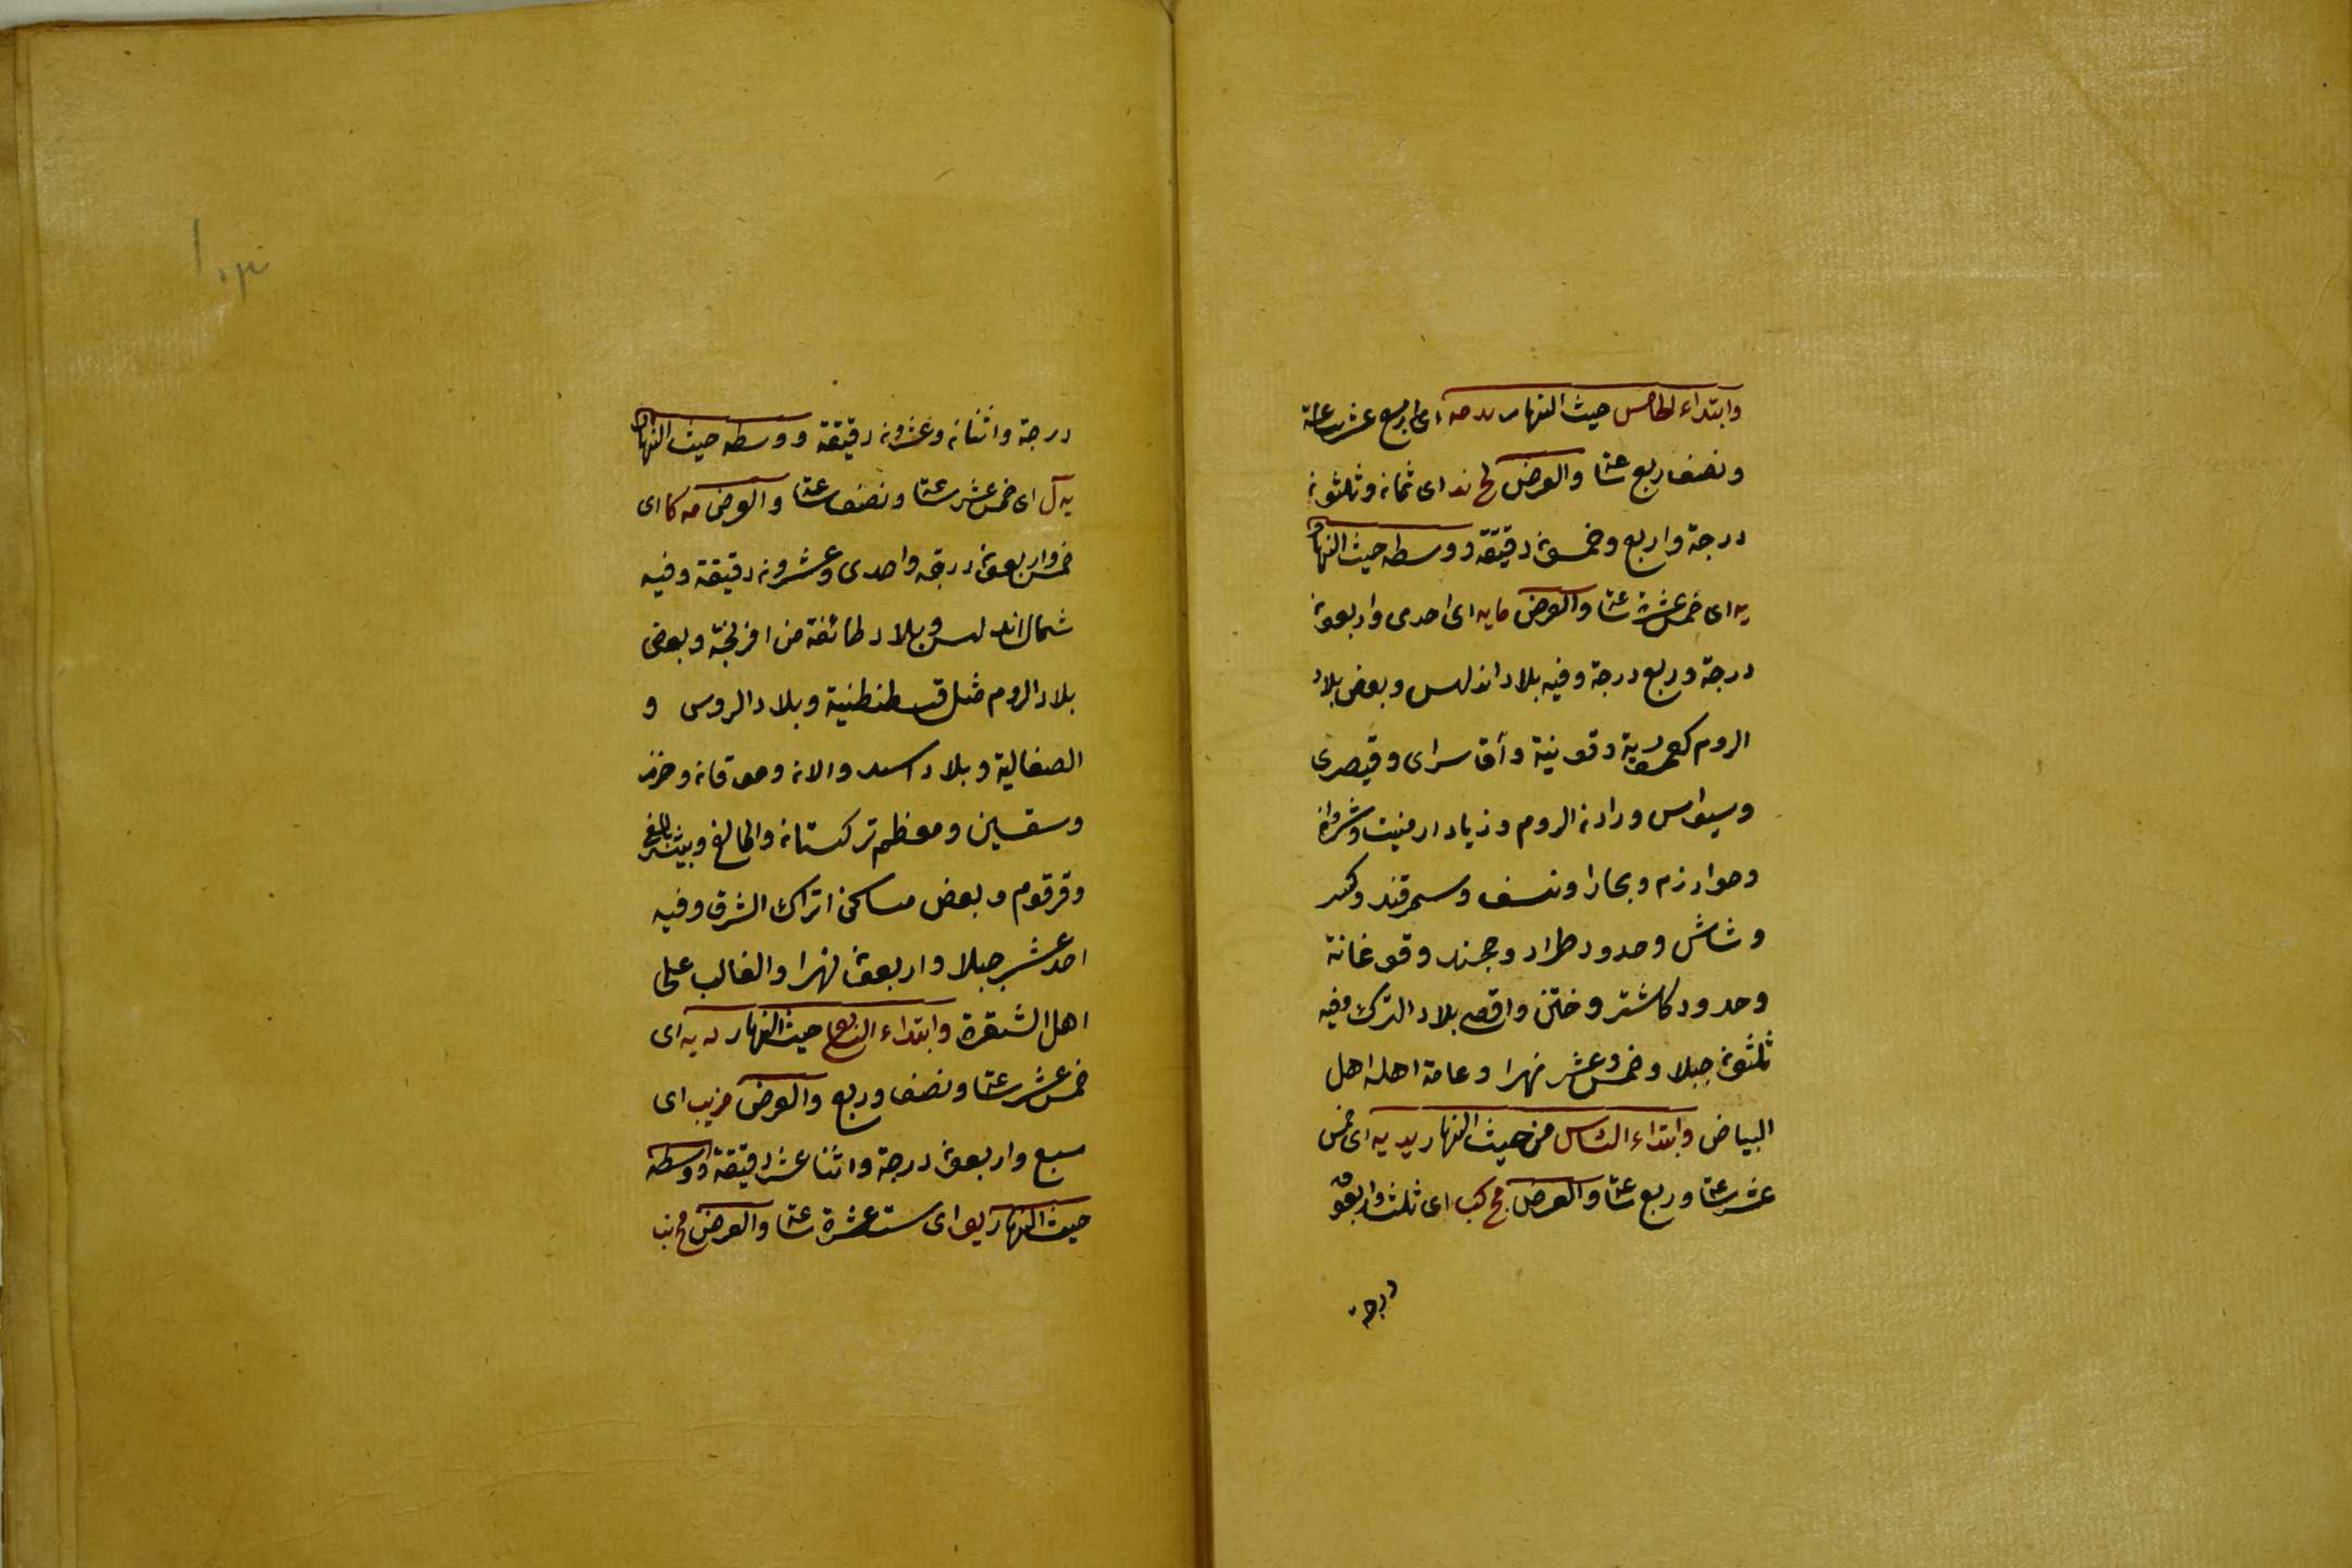 وابتداء الخامس حيث النهار يد مه اى اربع عشر ساعة
ونصف وربع ساعة والعرض لح ند اى ثمان وثلثون
درجة واربع وخمسون دقيقة ووسطه حيث النهار
يه اى خمس عشرة ساعة والعرض ما يه اى احدى واربعون
درجة وربع درجة وفيه بلاد اندلس وبعض بلاد
الروم كعمورية وقونية وآق سراى وقيصرى
وسيواس وراد ن الروم وزياد ارمنيت وشروان
وخوارزم وبخارا ونسف وسمرقند وكش
وشاش وحدود طراز وخجند وقوغانة
وحدود كاشتر وختن واقصى بلاد الترك وفيه
ثلثون جبلا وخمس وعشر نهرا وعامة اهله اهل
البياض وابتداء السادس من حيث النهار يد يه اى خمس
عشر ساعة وربع ساعة والعرض مح كب اى ثلث واربعون
درجة
١٠٣
درجة واثنان وعشرون دقيقة ووسطه حيث النهار
يه ل اى خمس عشر ساعة ونصف ساعة والعرض مه كا اى
خمس واربعون درجة واحدى وعشرون دقيقة وفيه
شمال اندلس وبلاد طائفة من افرنجة وبعض
بلاد الروم مثل قسطنطنية وبلاد الروس و
الصقالبة وبلاد اسد والان وموقان وخزر
وسقسين ومعظم تركستان والمالغ وبيش بالغ
وقرقوم وبعض مساكن اتراك الشرق وفيه
احد عشر جبلا واربعون نهرا والغالب على
اهل الشقرة وابتداء السابع حيث النهار يه يه اى
خمس عشر ساعة ونصف وربع والعرض مز يب اى
سبع واربعون درجة واثنا عشر دقيقة ووسطه
حيث النهار يو اى ست عشرة ساعة والعرض مح نب